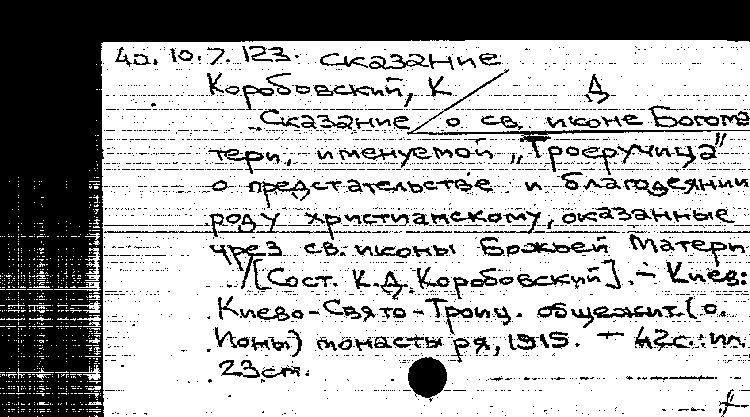 40. 10. 7. 123. Сказание
Коробовский, К Д
Сказание о св. иконе Богома
тери, именуемой „Троеручица"
о предстательстве и благодеянии
роду христианскому, оказанные
чрез св. иконы Божьей Матери
/[Сост. К.Д. Коробовский]. — Киев:
Киево-Свято-Троиц. общежит. (о.
Ионы) монастыря, 1915. — 42с.: ил.
23см.